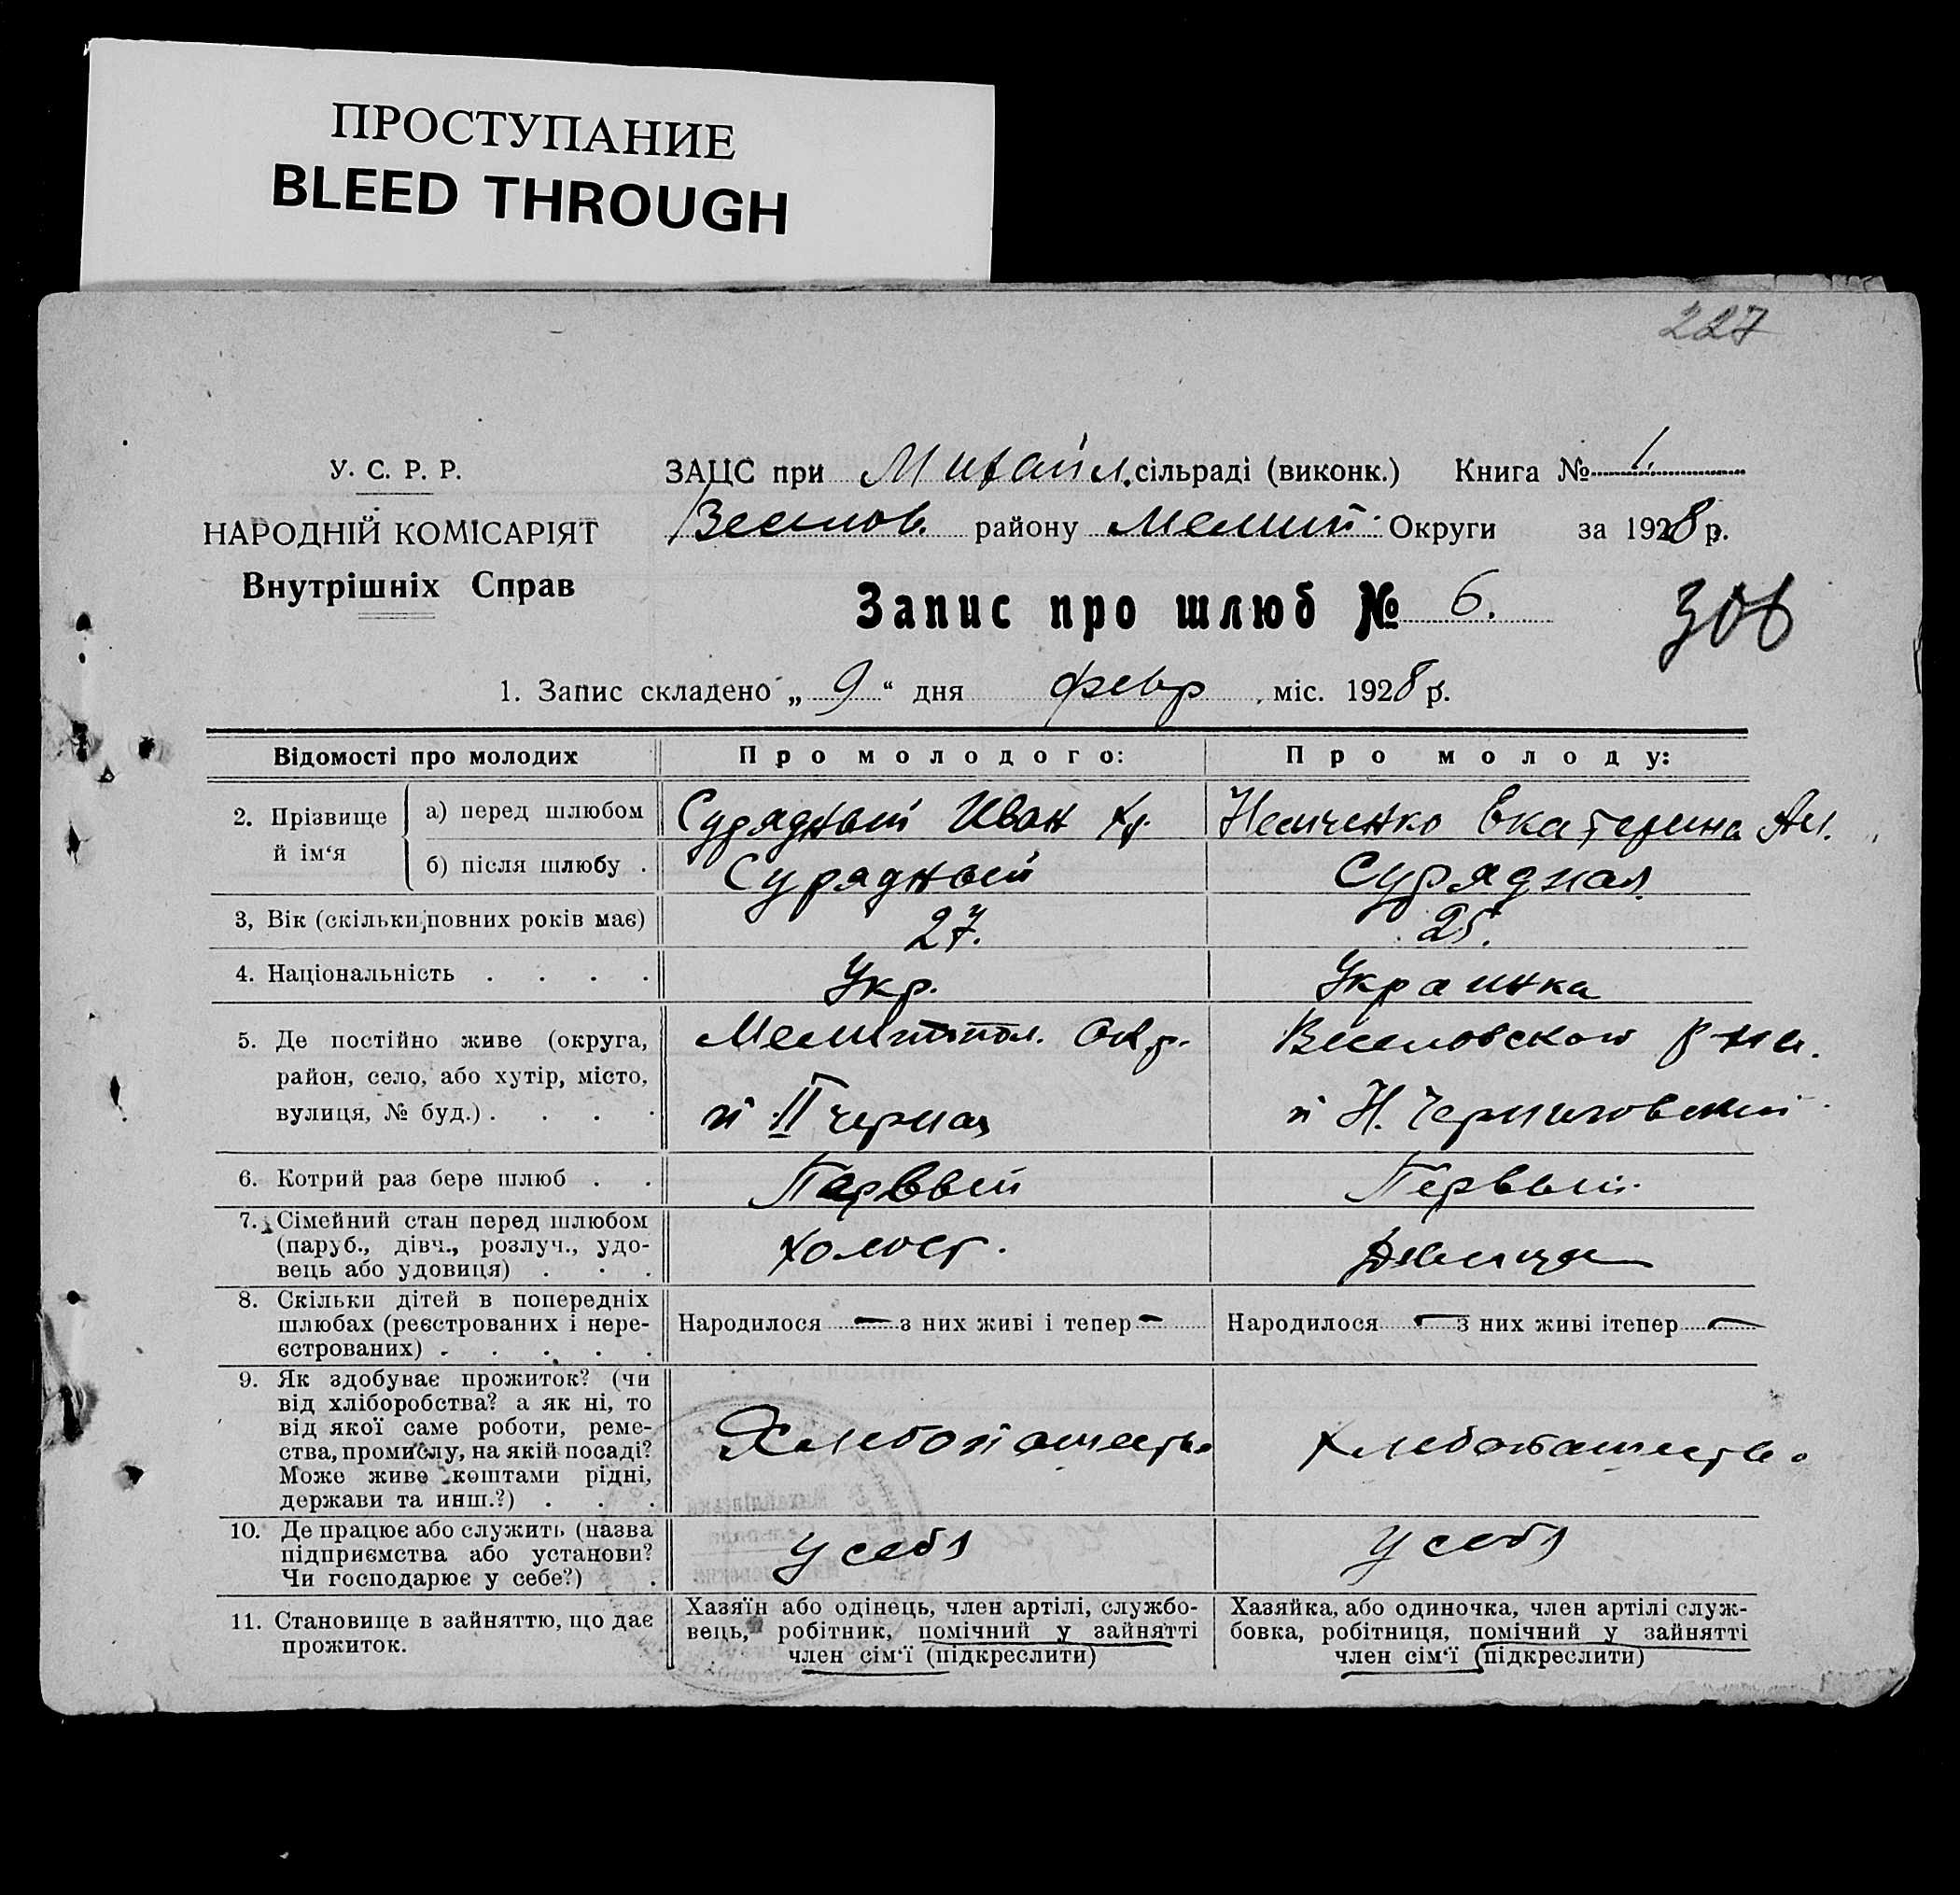 ПРОСТУПАНИЕ
BLEED THROUGH
227
У. С. Р. Р.
НАРОДНІЙ КОМІСАРІЯТ
Внутрішніх Справ
ЗАЦС при Михайл. сільраді (виконк.) Книга № 1.
Веселов. району Мелит. Округи за 1928 р.
Запис про шлюб № 6.
306
1. Запис складено „ 9 “ дня февр , міс. 1928 р.
Відомості про молодих Про молодого: Про молоду:
2. Прізвище й ім‘я
а) перед шлюбом Сурядный Иван Хр. Немченко Екатерина Ан.
б) після шлюбу . Сурядный Сурядная
3, Вік (скільки повних років має) 27. 25.
4. Національність . . . . Укр. Украинка
5. Де постійно живе (округа, Мелитопол. Окр. Веселовского р-на.
район, село, або хутір, місто, п II черная п Н. Черниговский
вулиця, № буд.) . . . .
6. Котрий раз бере шлюб . . Первый Первый.
7. Сімейний стан перед шлюбом Холост. Девица
(паруб., дівч., розлуч., удо-
вець або удовиця) . . .
8. Скільки дітей в попередніх Народилося — з них живі і тепер — Народилося — з них живі ітепер —
шлюбах (реєстрованих і нере-
єстрованих) . . . . .
9. Як здобуває прожиток? (чи Хлебопашество Хлебопашество
від хліборобства? а як ні, то
від якої саме роботи, реме-
ства, промислу, на якій посаді?
Може живе коштами рідні,
держави та инш.?) . . .
10. Де працює або служить (назва у себя у себя
підприємства або установи?
Чи господарює у себе?) .
11. Становище в зайняттю, що дає
прожиток.
Хазяїн або одінець, член артілі, службо-
вець, робітник, помічний у зайнятті
член сім‘ї (підкреслити)
Хазяйка, або одиночка, член артілі служ-
бовка, робітниця, помічний у зайнятті
член сім‘ї (підкреслити)